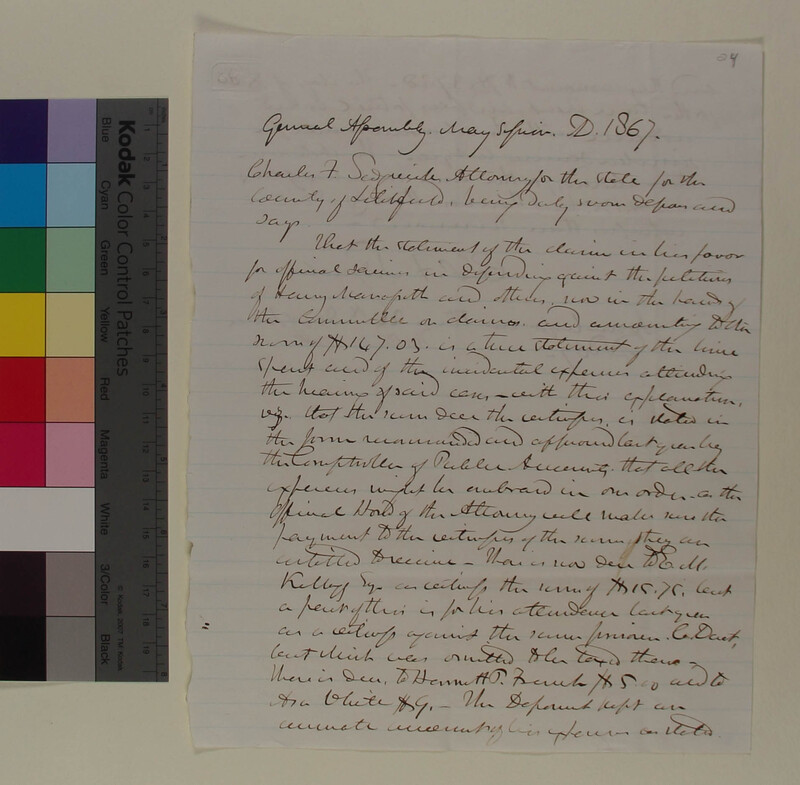 24
General Assembly. May Session. AD. 1867.
Charles F. Sedgwick Attorney for the State for the
County of Litchfield, being duly sworn deposes and
says.
That the statement of the claim in his favor
for official services in defending against the petitions
of Harry and others, now in the hands of
the Committee on claims, and amounting to the
sum of $147.03. is a true statement of the time
spent and of the incidental expenses attending
the hearing of said cases - with this explanation,
viz. that the sum due the witnesses, is stated in
the form recommended and approved last year by
the Comptroller of Public Accounts, that all the
expenses might be embraced in one order - as the
official bond of the Attorney will make sure the
payment to the witnesses of the sums they are
entitled to receive - There is now due to E. M.
Kellogg Esq. as witness the sum of $15.75, but
a part of this is for his attendance last year
as a witness against the same prisoner.
but which was omitted to be taxed then -
There is due to Harriet P. French $5.00 and to
Asa White $9. - The Deponent kept an
accurate account of his expenses as stated
Kodak Color Control Patches
Blue
Cyan
Green
Yellow
Red
Magenta
White
3/Color
Black
© Kodak, 2007 TM: Kodak